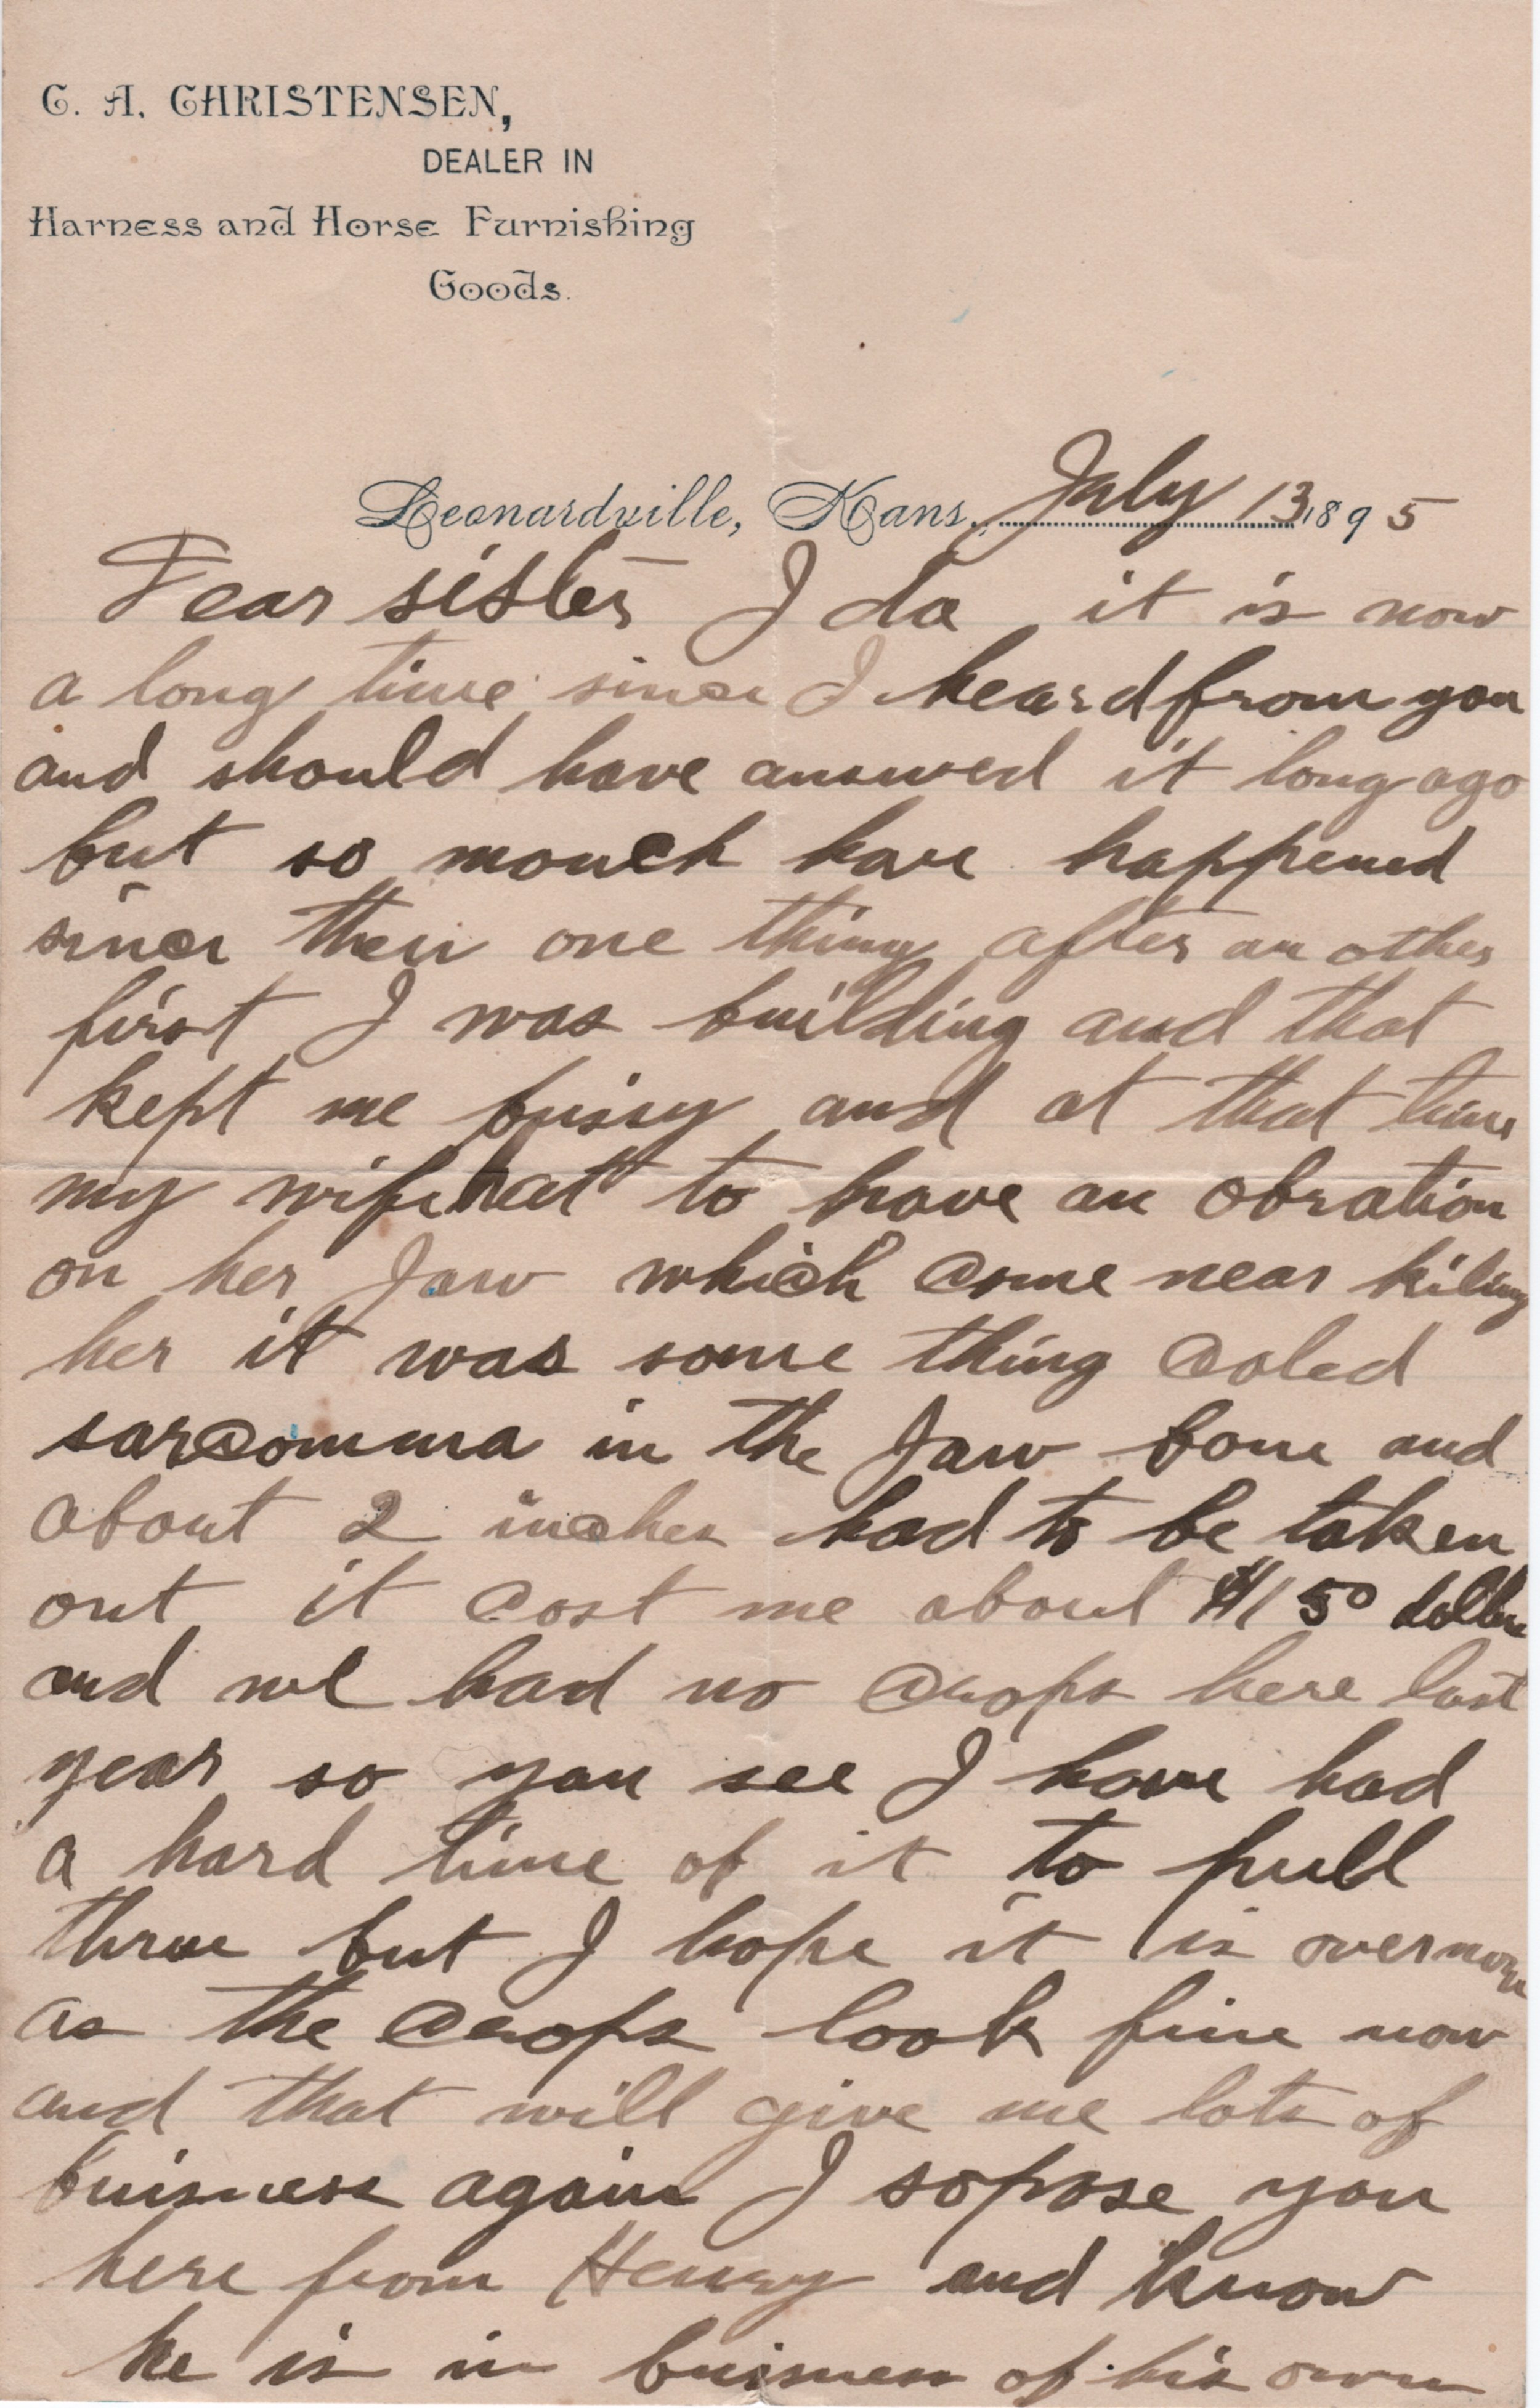 C. A. CHRISTENSEN,
DEALER IN
Harness and Horse Furnishing
Goods.
Leonardville, Kans., July 13, 1895
Dear sister Ida it is now
a long time since I heard from you
and should have answerd it long ago
but so mouch have happened
since then one thing after an other
first I was building and that
kept me buisy and at that time
my wife hat to have an obration
on her Jaw which come near kiling
her it was some thing coled
sarcomma in the Jaw bone and
about 2 inches had to be taken
out it cost me about $150 dollers
and we had no crops here last
year so you see I have had
a hard time of it to pull
thrue but I hope it is over now
as the crops look fine now
and that will give me lots of
buisness again I sopose you
here from Henry and know
he is in buisness of his own